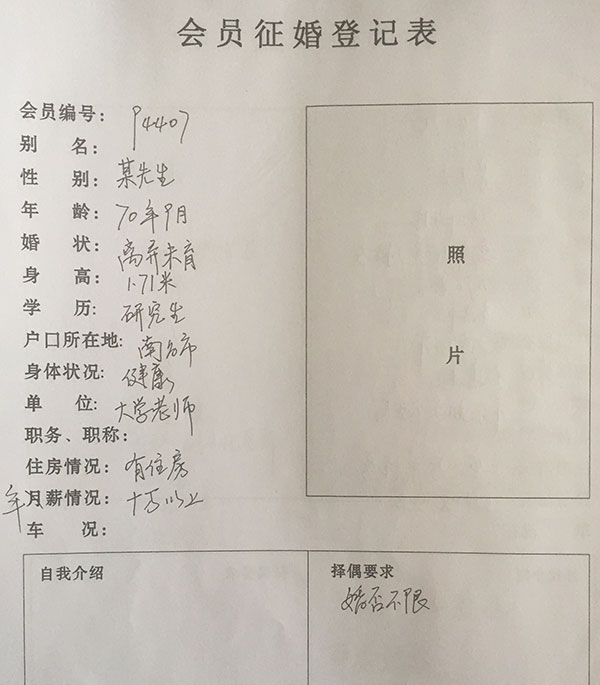 会员征婚登记表
会员编号: P4407
别 名:
性 别: 某先生
年 龄: 70年9月
婚 状: 离异未育
身 高: 1.71米
学 历: 研究生
户口所在地: 南名市
身体状况: 健康
单 位: 大学老师
职务、职称:
住房情况: 有住房
年月薪情况: 十万以上
车 况:
照
片
自我介绍
择偶要求
婚否不限